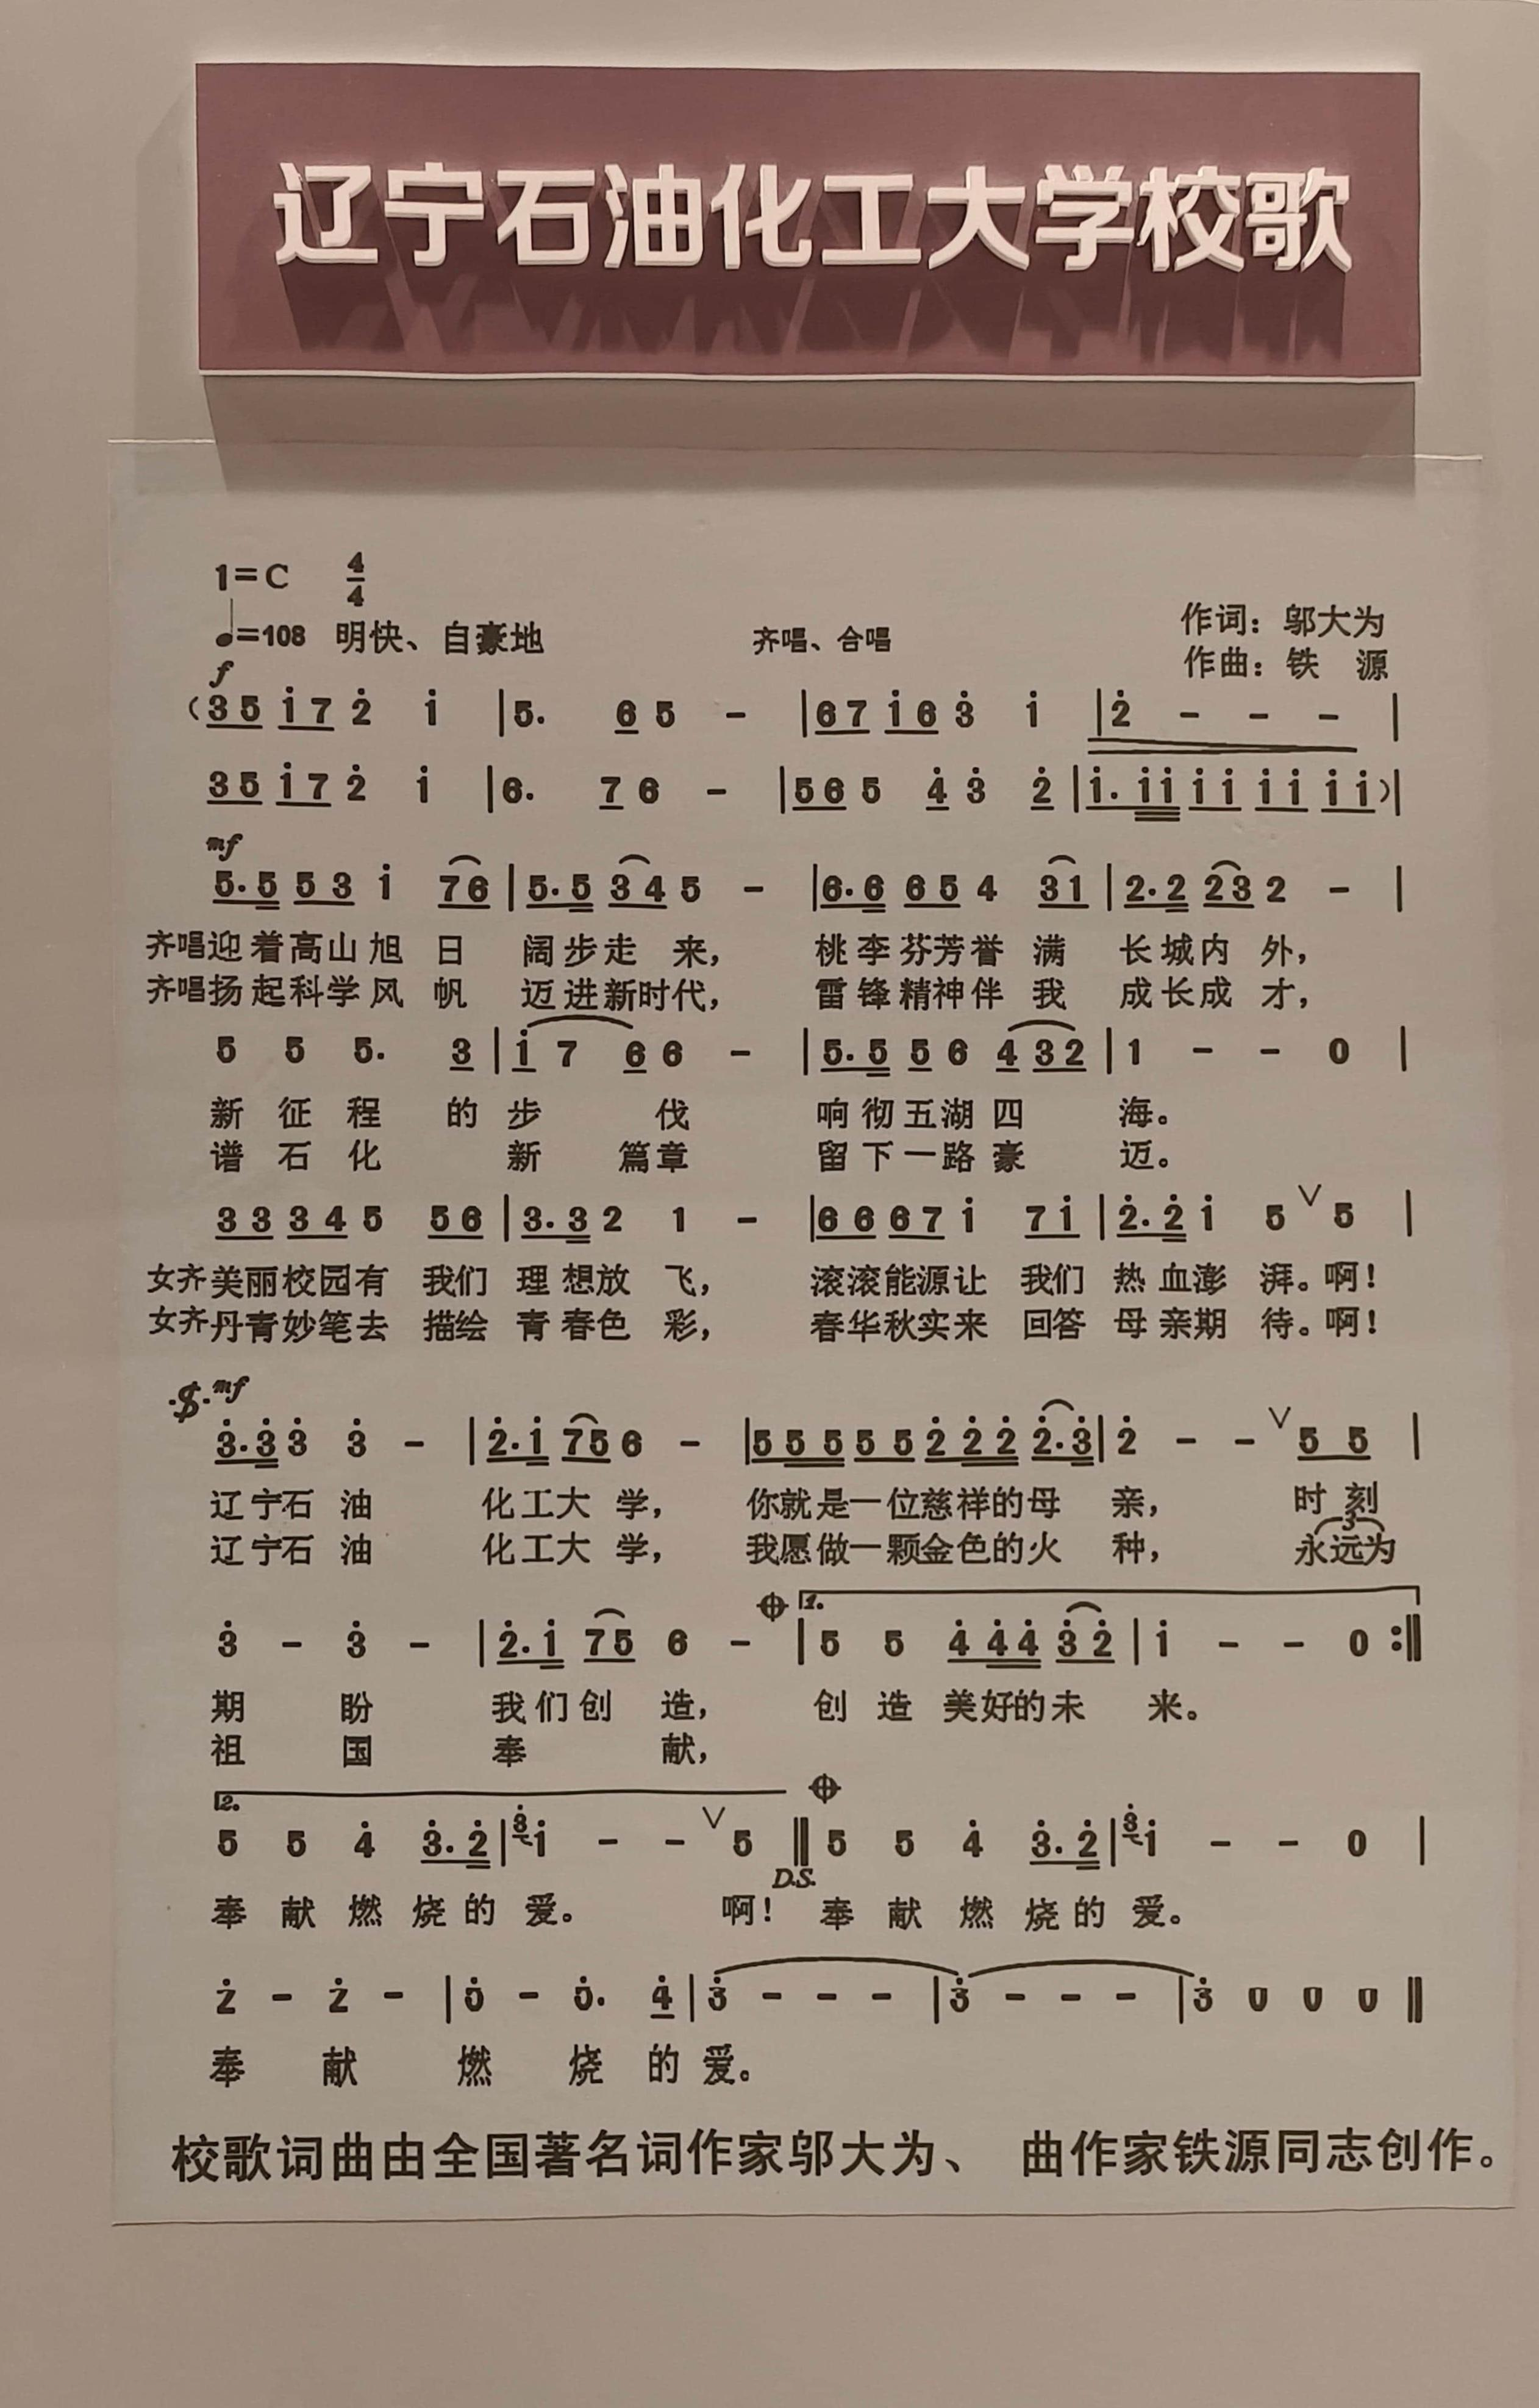 辽宁石油化工大学校歌
1=C 4/4
♩=108 明快、自豪地 齐唱、合唱 作词：邬大为
作曲：铁 源
f
(35 i̇7 2̇ i̇ |5. 6 5 - |67 i̇6 3̇ i̇ |2̇ - - - |
35 i̇7 2̇ i̇ |6. 7 6 - |56 5 4̇ 3̇ 2̇ |i̇. i̇i̇ i̇i̇ i̇i̇ i̇i̇)|
mf
5.5 53 i̇ 76 |5.5 34 5 - |6.6 65 4 31 |2.2 23 2 - |
齐唱迎着高山旭 日 阔步走 来， 桃李芬芳誉 满 长城内 外，
齐唱扬起科学风 帆 迈进新时代， 雷锋精神伴 我 成长成 才，
5 5 5. 3 |i̇ 7 6 6 - |5.5 5 6 4 32 |1 - - 0 |
新 征 程 的 步 伐 响彻五湖四 海。
谱 石 化 新 篇章 留下一路豪 迈。
33 34 5 56 |3.3 2 1 - |66 67 i̇ 7i̇ |2̇.2̇ i̇ 5 ∨ 5 |
女齐美丽校园有 我们 理想放 飞， 滚滚能源让 我们 热血澎 湃。啊！
女齐丹青妙笔去 描绘 青春色 彩， 春华秋实来 回答 母亲期 待。啊！
mf
3̇.3̇ 3̇ 3̇ - |2̇.i̇ 75 6 - |5 55 55 2̇ 2̇2̇ 2̇.3̇|2̇ - - ∨ 55 |
辽宁石 油 化工大 学， 你就是一位慈祥的母 亲， 时刻
3
辽宁石 油 化工大 学， 我愿做一颗金色的火 种， 永远为
1.
3̇ - 3̇ - |2̇.i̇ 75 6 - |5 5 4̇ 4̇4̇ 3̇2̇ |i̇ - - 0 :‖
期 盼 我们创 造， 创 造 美好的未 来。
祖 国 奉 献，
2.
5 5 4̇ 3̇.2̇ |3̇i̇ - - ∨ 5 ‖ 5 5 4̇ 3̇.2̇ |3̇i̇ - - 0 |
D.S.
奉 献 燃 烧的 爱。 啊！ 奉 献 燃 烧的 爱。
2̇ - 2̇ - | - 4̇ |3̇ - - - |3̇ - - - |3̇ 0 0 0 ‖
奉 献 燃 烧 的 爱。
校歌词曲由全国著名词作家邬大为、 曲作家铁源同志创作。